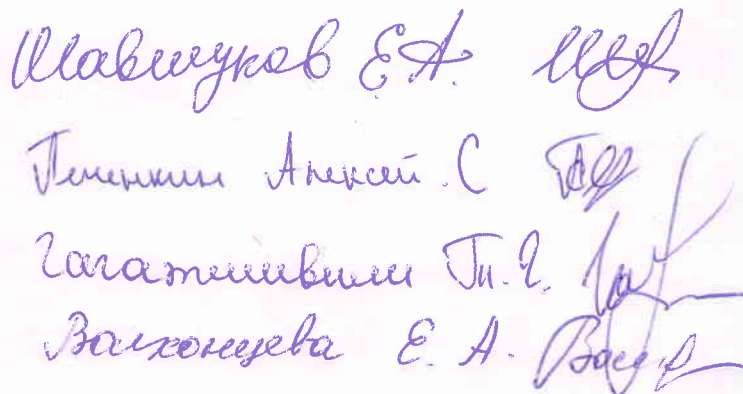 Шавшуков Е.А.
Пененкин Алексей С
Гагатишвили Тл. Г.
Волхонцева Е. А.